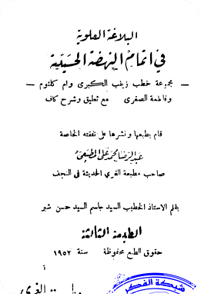 البلاغة العلوية
في اتمام النهضة الحسينية
— مجموعة خطب زينب الكبرى وام كلثوم —
وفاطمة الصغرى مع تعليق وشرح كاف
قام بطبعها ونشرها على نفقته الخاصة
صاحب مطبعة الغري الحديثة في النجف
بقلم الاستاذ الخطيب السيد جاسم السيد حسن شبر
الطبعة الثالثة
حقوق الطبع محفوظة سنة ١٩٥٢
شبكة الفكر